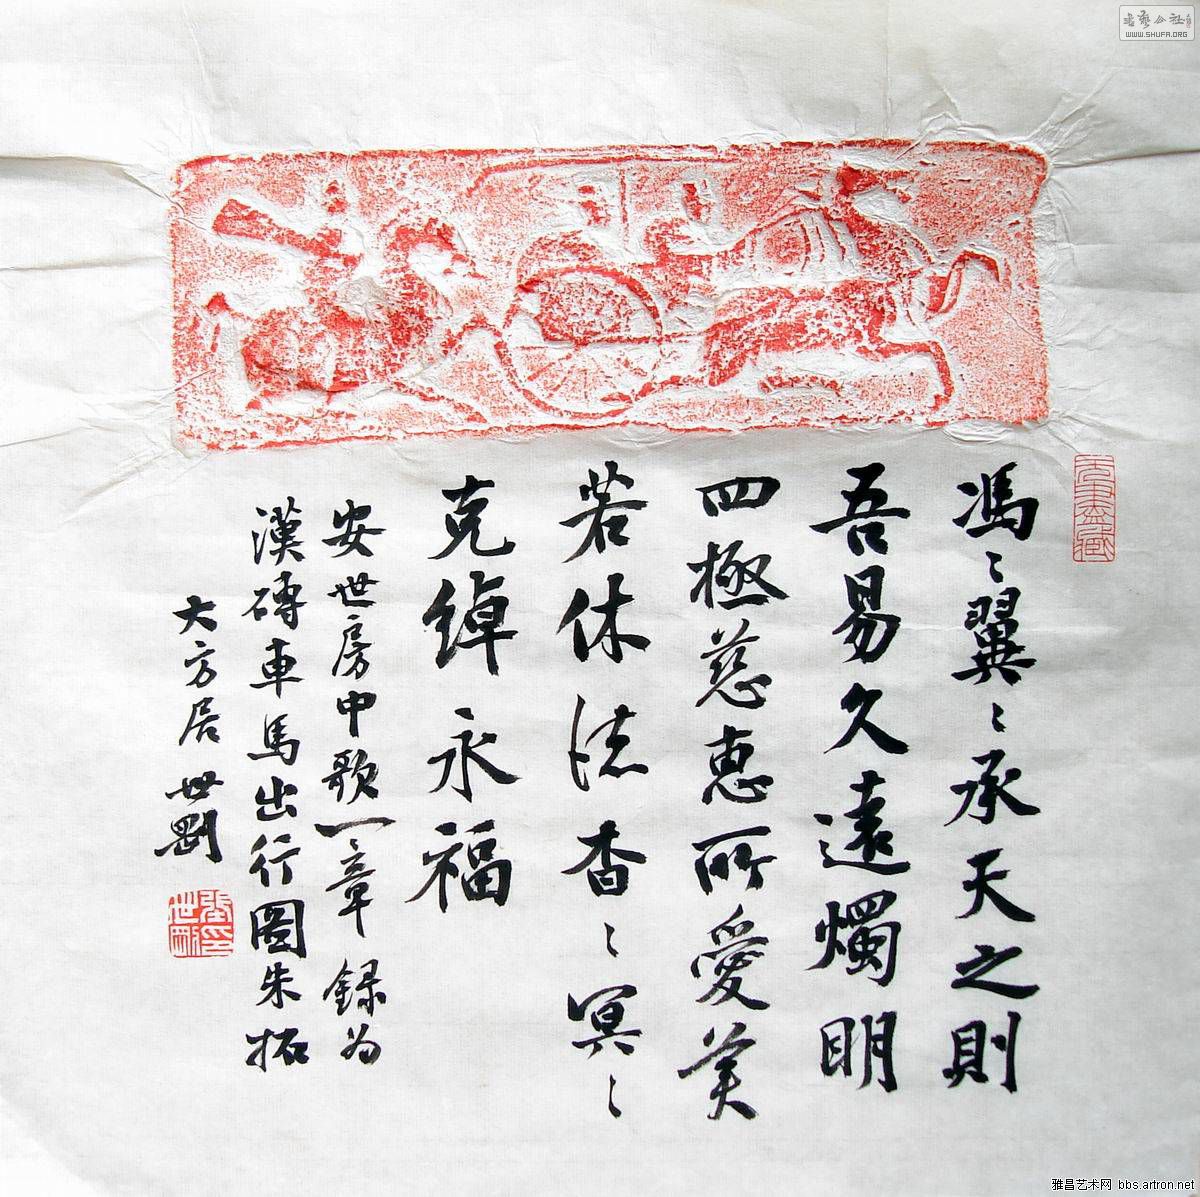 書藝公社
WWW.SHUFA.ORG
馮〻翼〻承天之則
吾易久遠燭明
四極慈惠所愛美
若休德杳〻冥〻
克綽永福
安世房中歌一章録为
漢磚車馬出行圖朱拓
大方居 世剛
雅昌艺术网 bbs.artron.net